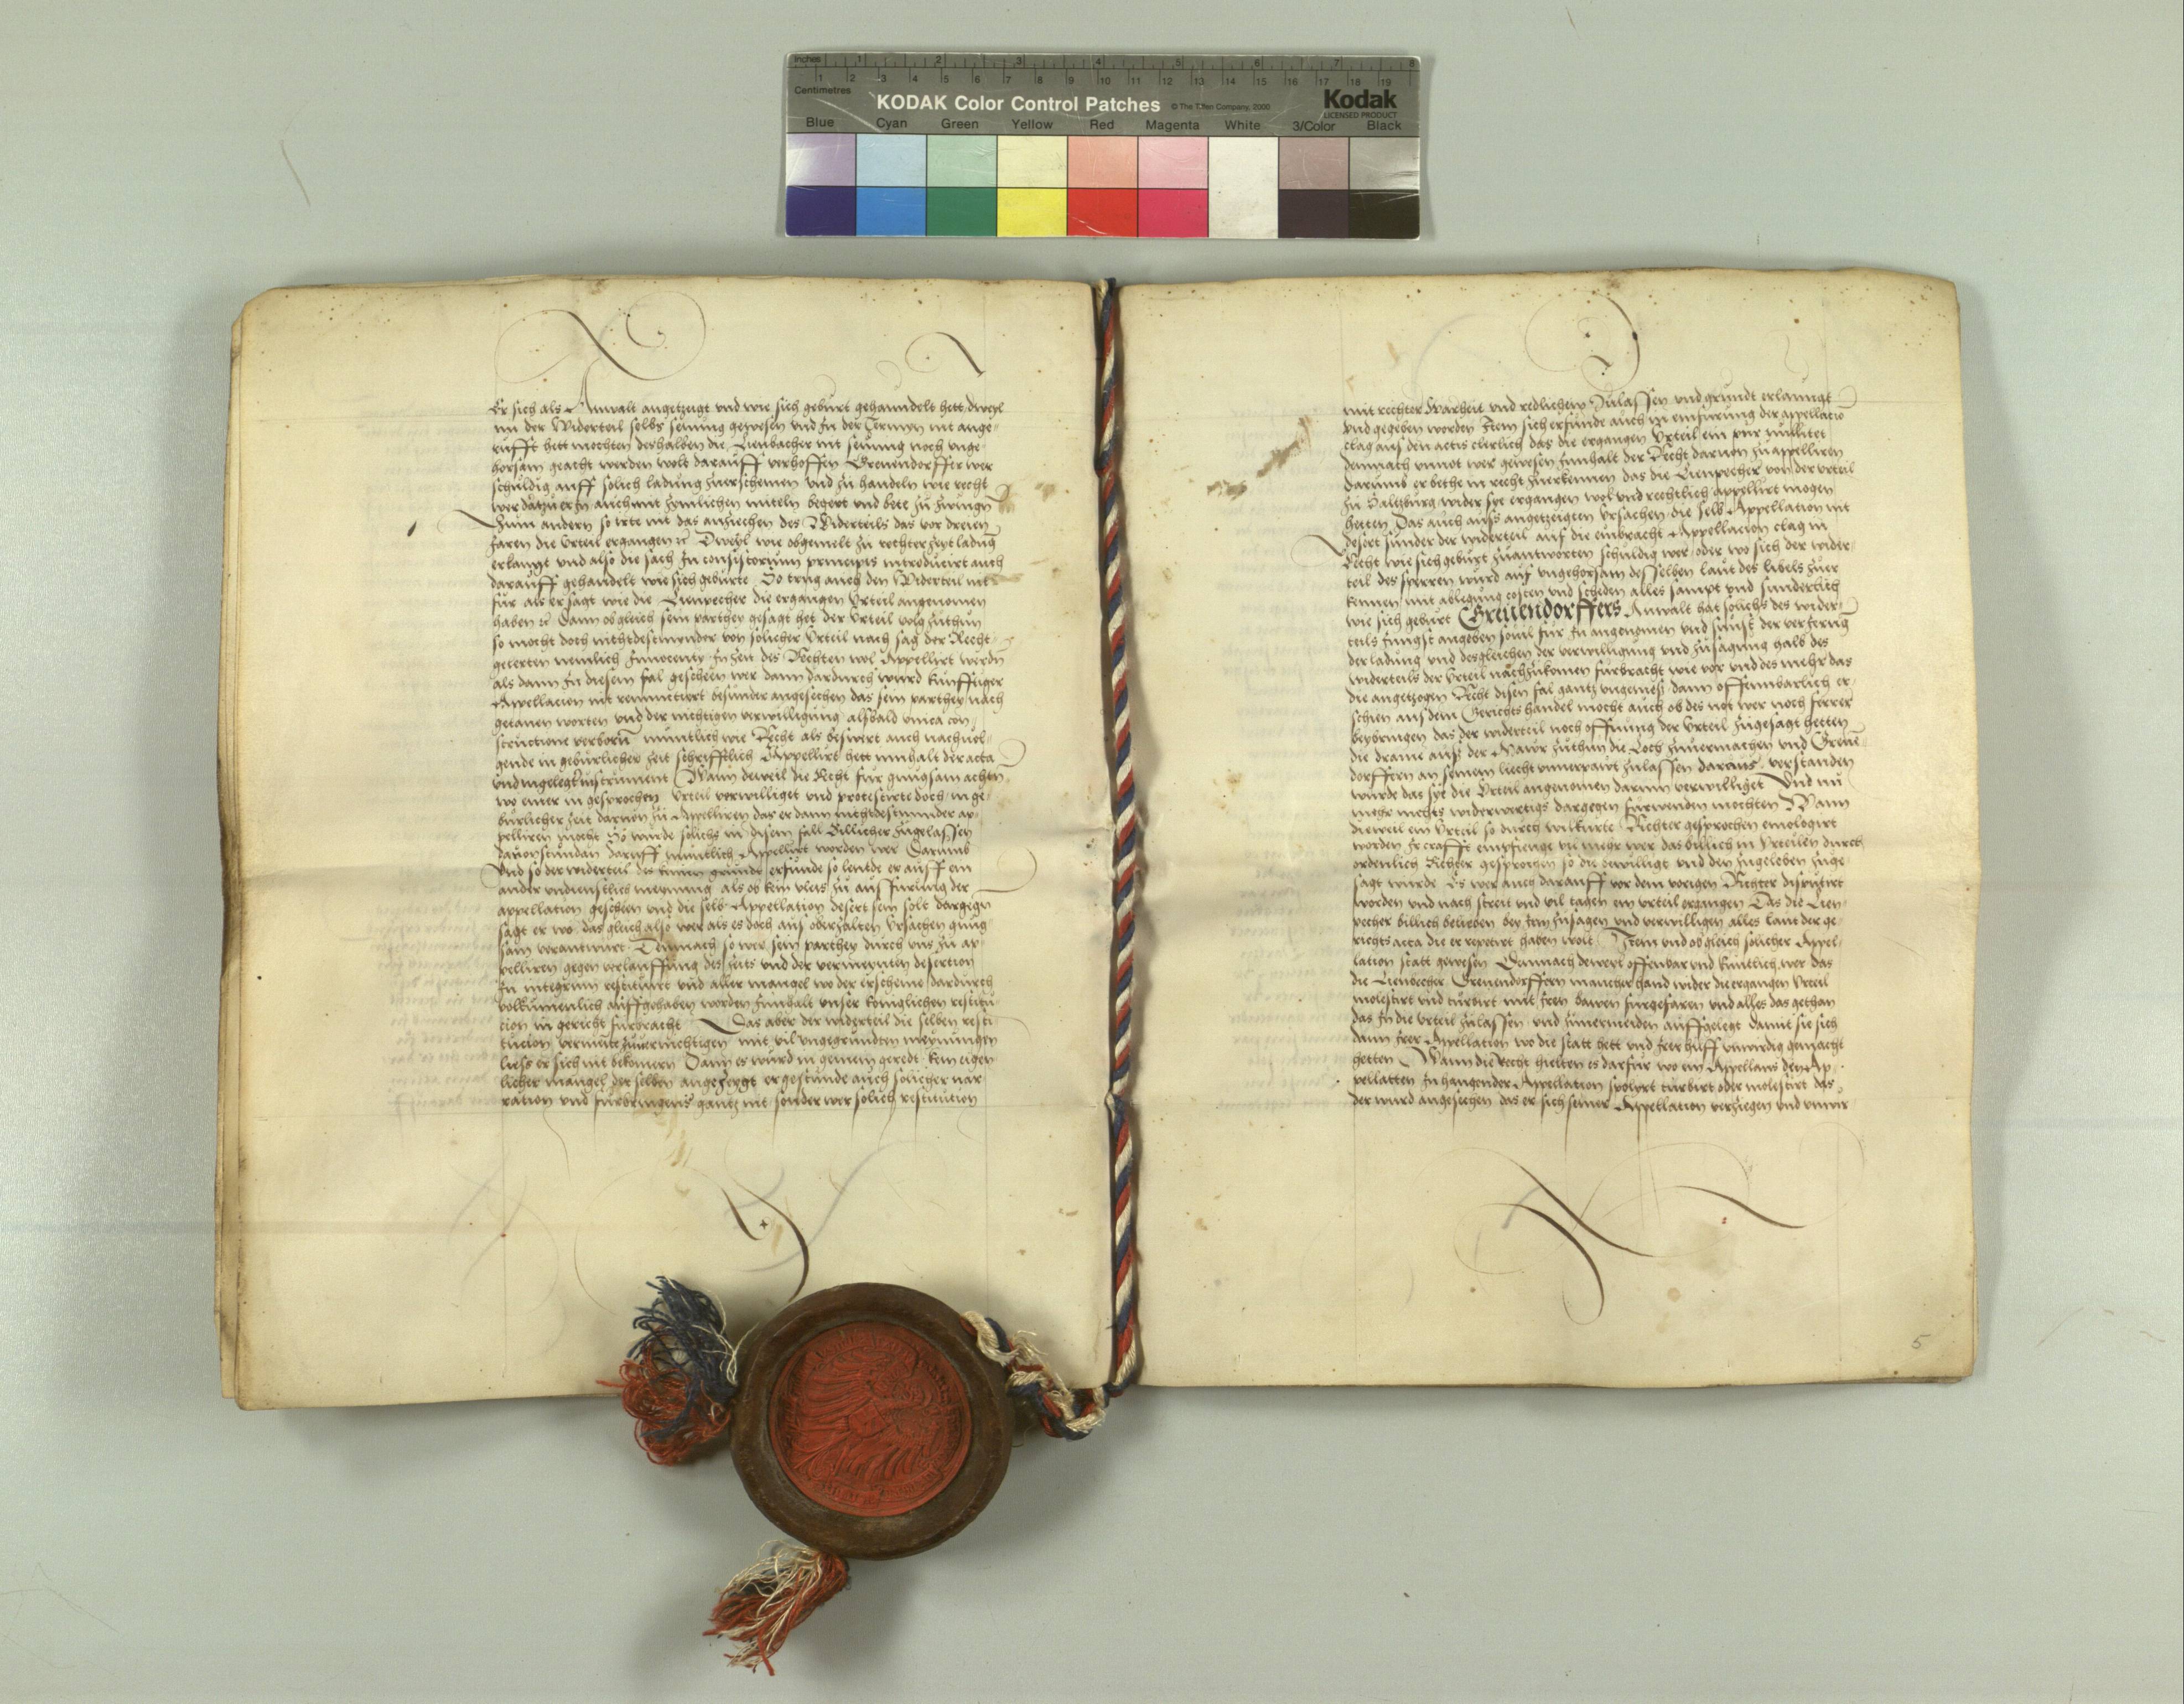 Inches 1 2 3 4 5 6 7 8
1 2 3 4 5 6 7 8 9 10 11 12 13 14 15 16 17 18 19
Centimetres
KODAK Color Control Patches © The Tiffen Company, 2000 Kodak
LICENSED PRODUCT
Blue Cyan Green Yellow Red Magenta White 3/Color Black
Er sich als Anwalt angetzeugt vnd wie sich geburt gehanndelt hett, dweyl
nu der Widerteil selbs seumig gewesen vnd jn der Termyn nit ange-
rufft hett mochten deshalben die Lienbacher nit seumig noch vnge-
horsam geacht werden wolt darauff verhoffen Greuendorffer wer
schuldig auff solich ladung zuerscheinen vnd zu handeln wie recht
wer datzu er jn auch mit zymlichen miteln begert vnd bete zu zwingn
Zum andern so irte nit das anziechen des Widerteils das vor dreien
Jaren die Vrteil ergangen rc Dweyl wie obgemelt zu rechter zeyt ladug
erlangt vnd also die sach jn consistorium principis introducirt auch
darauff gehandelt wie sich geburte So trug auch den Widerteil nit
fur als er sagt wie die Lienpecher die ergangen Vrteil angenomen
haben rc Dann ob gleich sein parthey gesagt het der Vrteil volg zuthun
so mocht doch nichtdestmynder von solicher Vrteil nach sag der Recht-
gelerten nemlich Jnnocency jn zeit des Rechten wol Appellirt werdn
als dann jn diesem fal gescheen wer dann dardurch wurd kunfftiger
Appellacion nit renuncciert besunder angesechen das sein parthey nach
getanen worten vnd der nichtigen verwilligung alsbald vnica con-
structione verborum muntlich wie Recht als beswert auch nachuol-
gende in geburlicher zeit schrifftlich Appellirt hett jnnhalt der acta
vnd ingelegt instrument Wann deweil die Recht fur gnugsam achtn
wo einer in gesprochen Vrteil verwilliget vnd protestirte doch in ge-
burlicher zeit daruon zu Appelliren das er dann nichtdestmynder ap-
pelliren mocht So wurde solichs in disem fall Billicher zugelassen
dauorstundan daruff muntlich Appellirt worden wer Darumb
Vnd so der widerteil des keinen grundt erfunde so lendte er auff ein
ander vndienstlich meynung als ob kein vleis zu ausfurung der
appellation gescheen vnd die selb Appellation desert sein solt dargegn
sagt er wo das gleich also wer als es doch aus obertzalten Vrsachen gnug-
sam verantwurt Demnach so wer sein parthey durch vns zu ap-
pelliren gegen verlauffung des zeits vnd der vermeynten desertion
jn integrum restituirt vnd aller mangel wo der erscheine dardurch
volkumenlich auffgehaben worden jnnhalt vnser koniglichen restitu-
cion in gericht furbracht Das aber der widerteil die selben resti-
tucion vermeint zuuernichtigen mit vil vngegrundten meynungen
liess er sich nit bekomern Dann es wurd in gemein geredt kein eigen-
licher mangel der selben angezeygt er gestunde auch solicher nar-
ration vnd furbringens gantz nit sonder wer solich restitution
mit rechter Warheit vnd redlichem Zulassen vnd grundt erlanngt
vnd gegeben worden Item sich erfunde auch in einfurung der appellacio
clag aus den actis clerlich das die ergangen Vrteil ein pur nullitet
demnach vnnot wer gewesen jnnhalt der Recht daruon zu appelliren
darumb er bethe in recht zuerkennen das die Lienpecher von der Vrteil
zu Saltzburg wider sye ergangen wol vnd rechtlich appellirt mogen
hetten Das auch auss angetzeigten Vrsachen die selb Appellation nit
desert sunder der widerteil auf die einbracht Appellacion clag in
Recht wie sich geburt zuantworten schuldig wer, oder wo sich der wider-
teil des sperren wurd auf vngehorsam desselben laut des libels zuer-
kennen mit ablegung costen vnd scheden alles sampt vnd sunderlich
wie sich geburt Greuendorffers Anwalt hat solichs des wider-
teils jungst angeben souil fur jn angenomen vnd sunst der verferug
der ladung vnd desgleichen der verwilligung vnd zusagung halb des
widerteils der Vrteil nachzukomen furbracht wie vor vnd des mehr das
die angetzogen Recht disen fal gantz vngemess dann offennbarlich er-
schien aus dem Gerichts handel mocht auch ob des not wer noch ferrer
beybringen das der widerteil noch offnung der Vrteil zugesagt hetten
die drame auss der Mawr zuthun die Loch zuuermachen vnd Greue-
dorffern an seinem liecht vnuerpawt zulassen daraus verstanden
wurde das sye die Vrteil angenomen darein verwilliget Vnd nu
mehr nichts widerwertigs dargegen furwenden mochten Wann
dieweil ein Vrteil so durch wilkurte Richter gesprochen emologirt
worden jr crafft empfienge vil mehr wer das billich in Vrteilen durch
ordenlich Richter gesprochen so die bewilligt vnd den zugeleben zuge-
sagt wurde Es wer auch darauff vor dem vorigen Richter disputirt
worden vnd nach streit vnd vil tagen ein vrteil ergangen Das die Lien-
pecher billich beliben bey jrem zusagen vnd verwilligen alles laut der ge-
richts acta die er repetirt haben wolt Item vnd ob gleich solicher Appel-
lation statt gewesen Dannach deweyl offenbar vnd kuntlich wer das
die Lienbecher Greuendorffern mancher hand wider die ergangen Vrteil
molestirt vnd turbirt mit jren bawen furgefaren vnd alles das gethan
das jn die Vrteil zulassen vnd zuuermeiden auffgelegt damit sie sich
dann jrer Appellation wo die statt hett vnd jrer huff vnwirdig gemacht
hetten Wann die Recht hielten es darfur wo ein Appellans den Ap-
pellatten jn hangender Appellation spolyrt turbirt oder molestirt das
der wurd angesechen das er sich seiner Appellation verziegen vnd vnwir-
5